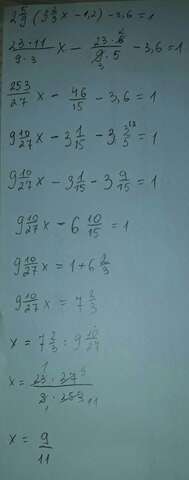 2 5/9 (3 2/3 x - 1,2) - 3,6 = 1
23·11/9·3 x - 23·6/9·5 - 3,6 = 1
253/27 x - 46/15 - 3,6 = 1
9 10/27 x - 3 1/15 - 3 3/5 = 1
9 10/27 x - 3 1/15 - 3 9/15 = 1
9 10/27 x - 6 10/15 = 1
9 10/27 x = 1 + 6 2/3
9 10/27 x = 7 2/3
x = 7 2/3 : 9 10/27
x = 23·27/3·253
x = 9/11